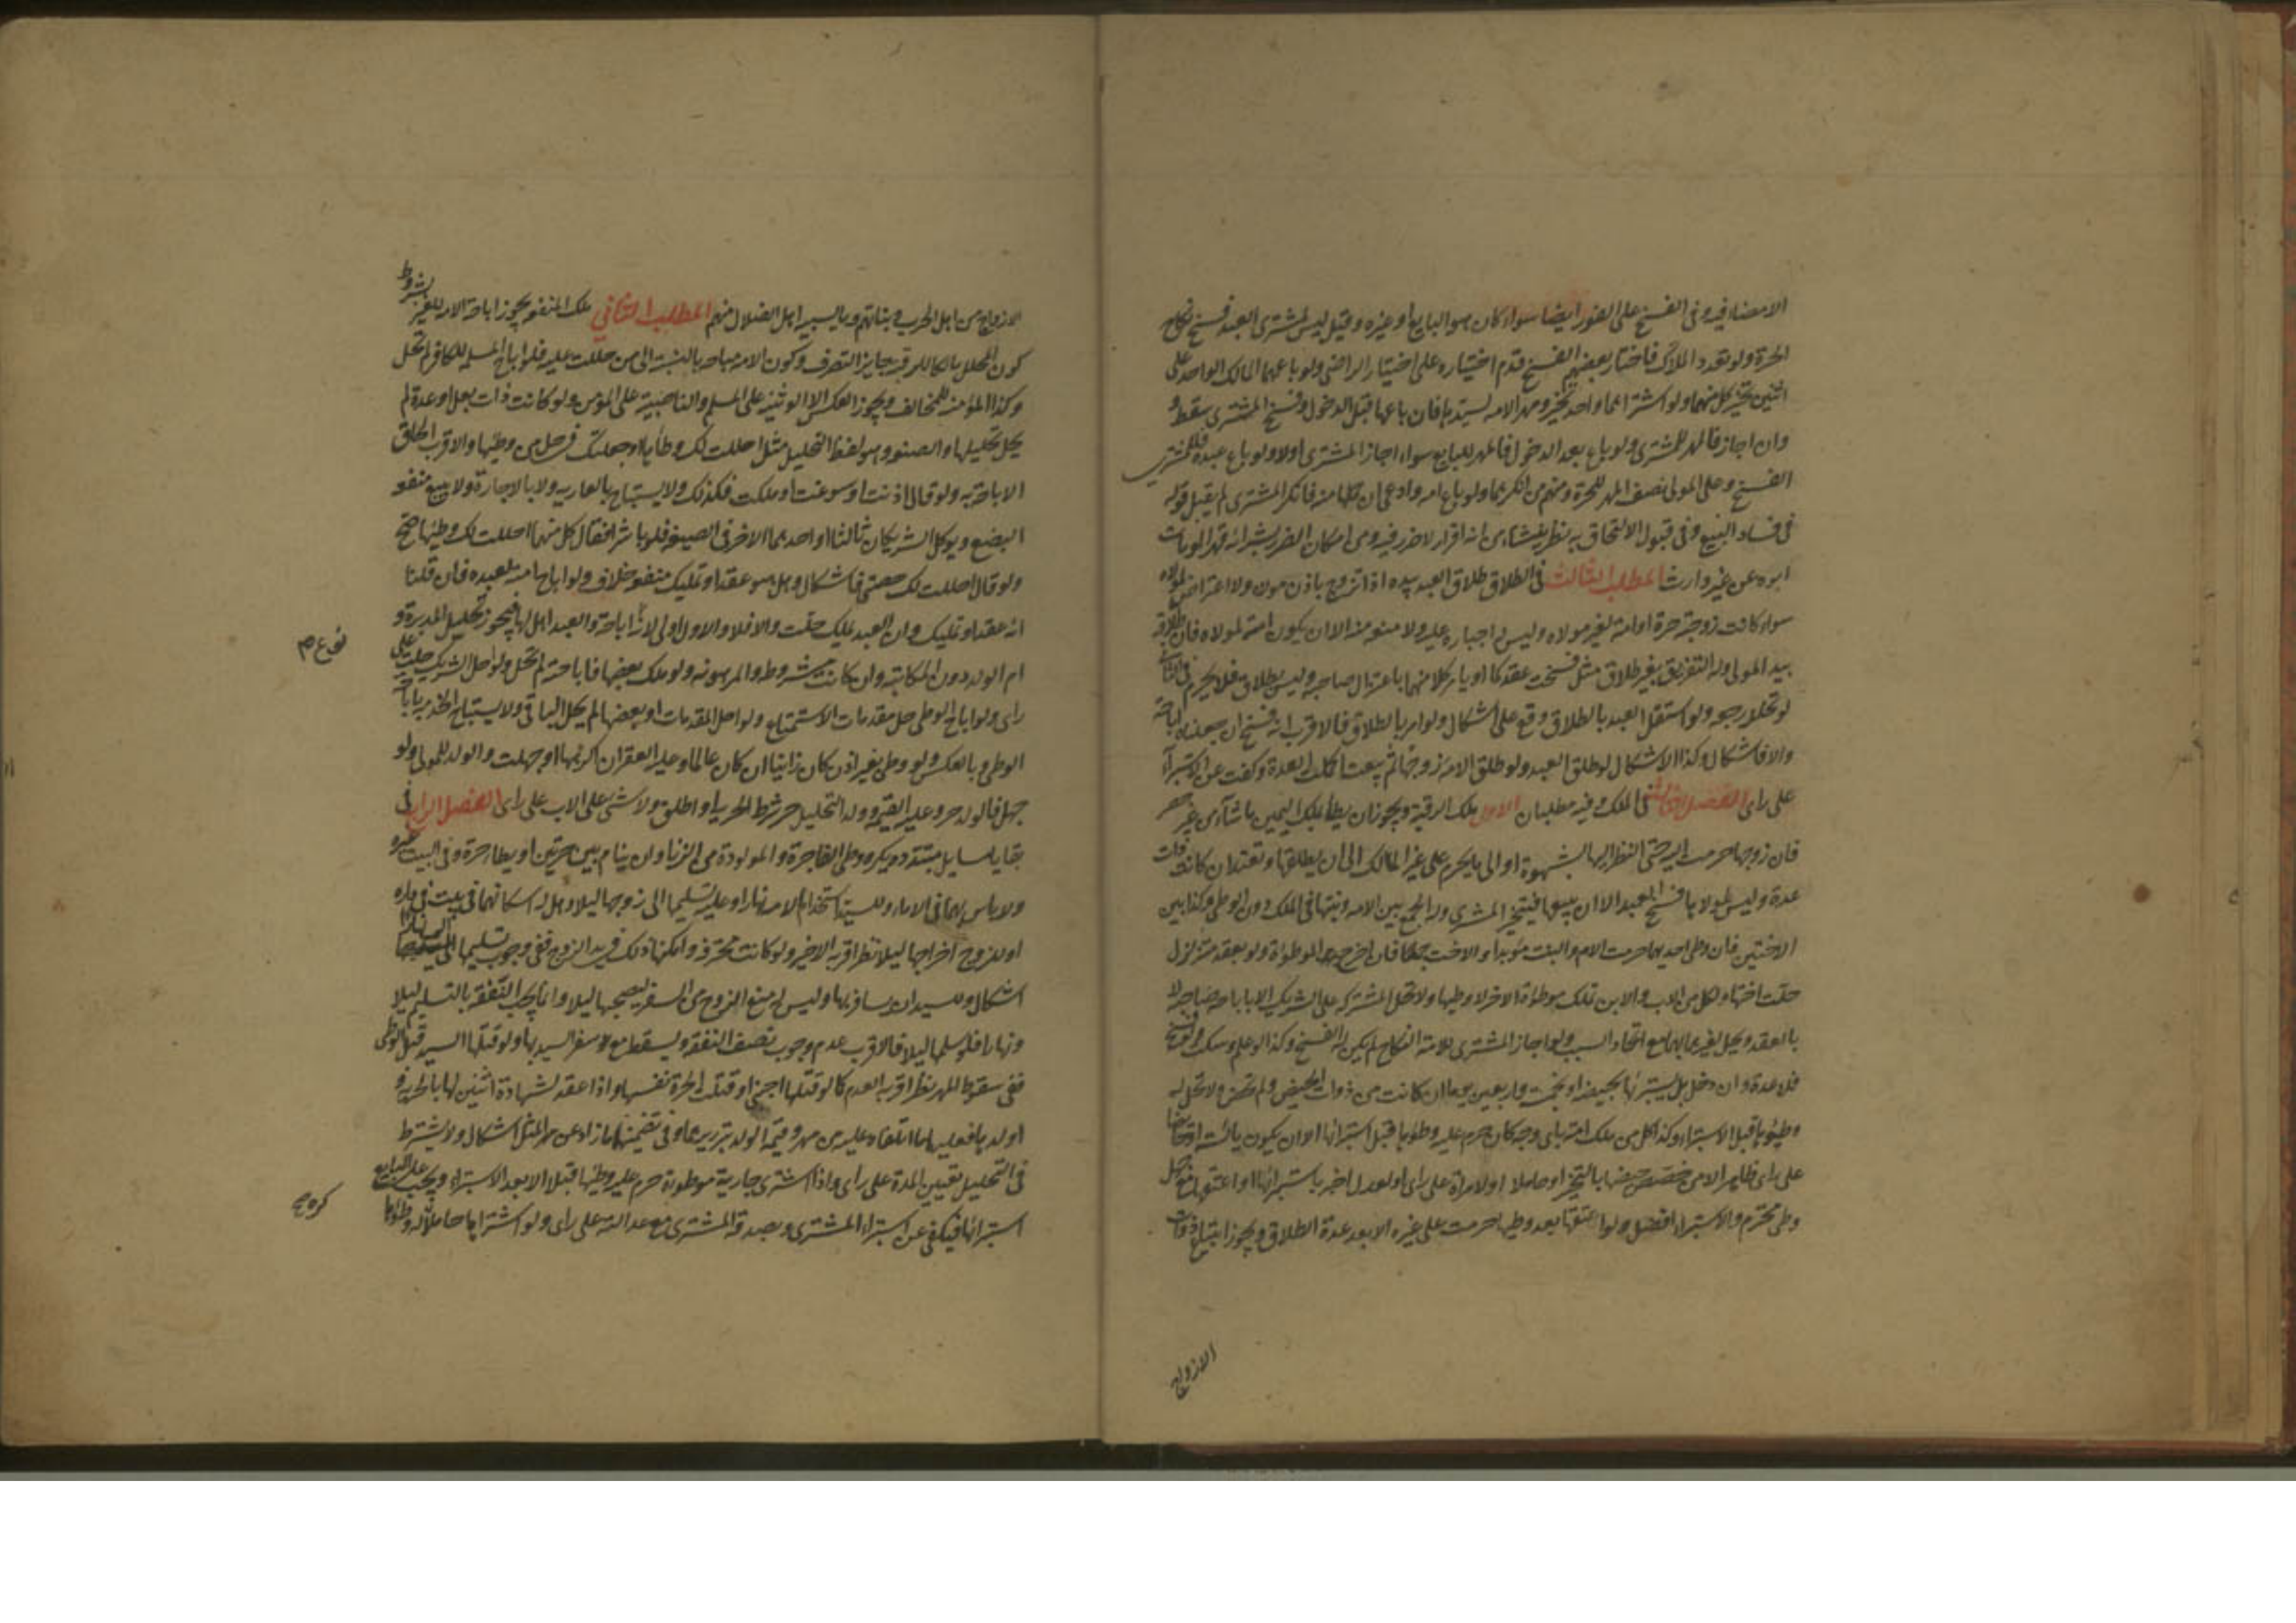 الامضاء فيه وفى الفسخ على الفور ايضا سواء كان هو البايع او غيره وقيل ليس لمشترى العبد فسخ نكاح
الحرة ولو تعدد الملاك فاختار بعضهم الفسخ قدم اختياره على اختيار الراضى ولو باعهما المالك الواحد على
اثنين تخير كل منهما ولو اشتراهما واحد تخير ومهر الامة لسيدها فان باعها قبل الدخول وفسخ المشترى سقط
وان اجاز فالمهر للمشترى ولو باع بعد الدخول فالمهر للبايع سواء اجاز المشترى اولا ولو باع عبده فللمشترى
الفسخ وعلى المولى نصف المهر للحرة ومنهم من انكرهما ولو باع امة وادعى ان حملها منه فانكر المشترى لم يقبل قوله
فى فساد البيع وفى قبول الالتحاق به نظر ينشأ من انه اقرار لا ضرر فيه ومن امكان الضرر بشرائه قهرا لو مات
ابوه عن غير وارث المطلب الثالث فى الطلاق طلاق العبد بيده اذا تزوج باذن مولاه ولا اعتراض لمولاه
سواء كانت زوجته حرة او امة لغير مولاه وليس له اجباره عليه ولا منعه منه الا ان يكون امة لمولاه فان طلاقه
بيد المولى وله التفريق بغير طلاق مثل فسخت عقدكما او يأمر كلا منهما باعتزال صاحبه وليس بطلاق فلا يحرم فى الثانى
لو تخللا رجعة ولو استقل العبد بالطلاق وقع على اشكال ولو امر بالطلاق فالاقرب انه فسخ ان جعلناه اباحة
والا فاشكال وكذا الاشكال لو طلق العبد ولو طلق الامة زوجها ثم بيعت اكملت العدة وكفت عن الاستبراء
على راى الفصل الثالث فى الملك وفيه مطلبان الاول ملك الرقبة ويجوز ان يطأ بملك اليمين ما شاء من غير حصر
فان زوجها حرمت اليه حتى النظر اليها بشهوة او الى ما يحرم على غير المالك الى ان يطلقها وتعتد ان كانت ذات
عدة وليس لمولاها فسخ العبد الا ان يبيعها فيتخير المشترى وله الجمع بين الامة وبنتها فى الملك دون الوطى وكذا بين
الاختين فان وطى احديهما حرمت الام والبنت مؤبدا والاخت جمعا فان اخرج الموطؤة ولو بعقد متزلزل
حلت اختها ولكل من الاب والابن تملك موطؤة الاخر لا وطيها ولا تحل المشتركة على الشريك الا باباحة صاحبه لا
بالعقد ويحل لغيرهما بهما مع اتحاد السبب ولو اجاز المشترى للامة النكاح لم يكن له الفسخ وكذا لو علم وسكت ولو فسخ
فلا عدة وان دخل بل يستبرئها بحيضة او بخمسة واربعين يوما ان كانت من ذوات الحيض ولم تحض ولا تحل له
وطؤها قبل الاستبراء وكذا كل من ملك امة باى وجه كان حرم عليه وطئها قبل استبرائها الا ان يكون يائسة او حايضا
على راى فظاهر الامن بالتخير او حاملا او لامراة على راى او لعدل اخبر باستبرائها او اعتقها مع جهل
وطى محترم والاستبراء افضل ولو اعتقها بعد وطيها حرمت على غيره الا بعد عدة الطلاق ويجوز ابتياع ذوات
الازواج
الازواج من اهل الحرب وبناتهم وما يسبيه اهل الضلال منهم المطلب الثانى ملك المنفعة يجوز اباحة الامة للغير بشروط
كون المحلل مالكا للرقبة جايز التصرف وكون الامة مباحة بالنسبة الى من حللت عليه فلو اباح المسلمة للكافر لم تحل
وكذا المؤمنة للمخالف ويجوز العكس الا الوثنية على المسلم والناصبية على المؤمن ولو كانت ذات بعل او عدة لم
يحل تحليلها والصيغة وهو لفظ التحليل مثل احللت لك وطأها او جعلتك فى حل من وطيها والاقرب الحاق
الاباحة به ولو قال اذنت او سوغت او ملكت فكذلك ولا يستباح بالعارية ولا بالاجارة ولا ببيع منفعة
البضع ويوكل الشريكان ثالثا او احدهما الاخر فى الصيغة فلو باشر افقال كل منهما احللت لك وطيها صح
ولو قال احللت لك حصتى فاشكال وهل هو عقد او تمليك منفعة خلاف ولو اباح امته لعبده فان قلنا
انه عقد او تمليك وان العبد يملك حلت والا فلا والاول اولى لانه اباحة والعبد اهل لها ويجوز تحليل المدبرة و
ام الولد دون المكاتبة وان كانت مشروطة والمرهونة ولو ملك بعضها فاباحته لم تحل ولو احل الشريك حلت على
راى ولو اباح الوطى حل مقدمات الاستمتاع ولو احل المقدمات او بعضها لم يحل الباقى ولا يستباح الخدمة باباحة
الوطى وبالعكس ولو وطى بغير اذن كان زانيا ان كان عالما وعليه العقر ان اكرهها او جهلت والولد للمولى ولو
جهل فالولد حر وعليه القيمة وولد التحليل حر شرط الحرية او اطلق ولا شئ على الاب على راى الفصل الرابع فى
بقايا مسايل متبددة يكره وطى الفاجرة والمولودة من الزنا وان ينام بين حرتين او يطأ حرة وفى البيت غيره
ولا باس بهما فى الاماء وللسيد استخدام الامة نهارا وعليه تسليمها الى زوجها ليلا وهل له اسكانهما فى بيت فى داره
او للزوج اخراجها ليلا نظر اقربه الاخير ولو كانت محترفة وامكنها ذلك فى يد الزوج ففى وجوب تسليمها اليه نهارا
اشكال وللسيد ان يسافر بها وليس له منع الزوج من السفر ليصحبها ليلا وانما يجب النفقة بالتسليم ليلا
ونهارا فلو سلمها ليلا فالاقرب عدم وجوب نصف النفقة ويسقط مع سفر السيد بها ولو قتلها السيد قبل الوطى
ففى سقوط المهر نظر اقربه العدم كما لو قتلها اجنبى او قتلت الحرة نفسها واذا عقد لشهادة اثنين لها بالحرية و
اولد بها فعليهما ما اتلفاه عليه من مهر وقيمة الولد بتزويرهما وفى تضمينها ما زاد عن مهر المثل اشكال ولا يشترط
فى التحليل تعيين المدة على راى واذا اشترى جارية موطوئة حرم عليه وطيها قبلا الا بعد الاستبراء ويجب على البايع
استبرائها فيكفى عن استبراء المشترى ويصدقه المشترى مع عدالته على راى ولو اشتراها حاملا كره وطؤها